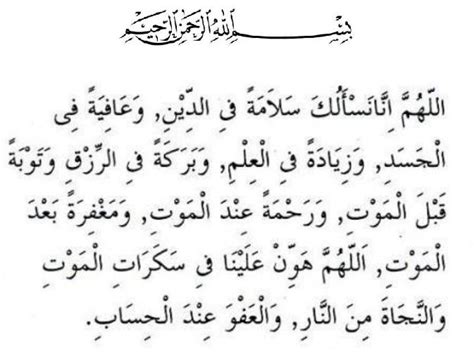 بِسْمِ اللهِ الرَّحْمٰنِ الرَّحِيْمِ
اَللّٰهُمَّ اِنَّانَسْأَلُكَ سَلَامَةً فِى الدِّيْنِ, وَعَافِيَةً فِى
الْجَسَدِ, وَزِيَادَةً فِى الْعِلْمِ, وَبَرَكَةً فِى الرِّزْقِ وَتَوْبَةً
قَبْلَ الْمَوْتِ, وَرَحْمَةً عِنْدَ الْمَوْتِ, وَمَغْفِرَةً بَعْدَ
الْمَوْتِ, اَللّٰهُمَّ هَوِّنْ عَلَيْنَا فِى سَكَرَاتِ الْمَوْتِ
وَالنَّجَاةَ مِنَ النَّارِ, وَالْعَفْوَ عِنْدَ الْحِسَابِ.